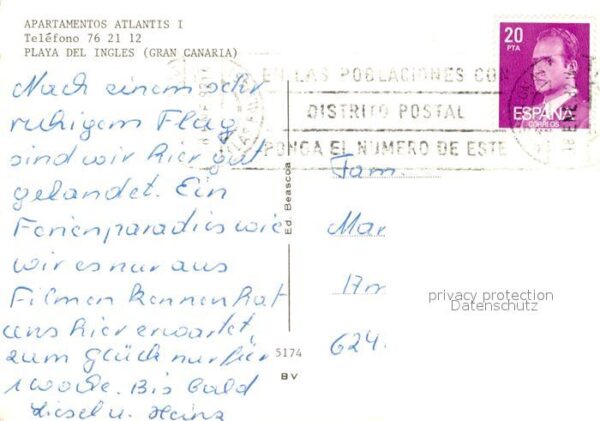 APARTAMENTOS ATLANTIS I
Teléfono 76 21 12
PLAYA DEL INGLES (GRAN CANARIA)
Nach einem sehr
ruhigem Flug
sind wir hier gut
gelandet. Ein
Ferienparadies wie
wir es nur aus
Filmen kennen hat
uns hier erwartet
zum Glück nur für
1 Woche. Bis bald
Liesel u. Heinz
Ed. Beascoa
5174
BV
EN LAS POBLACIONES CON
DISTRITO POSTAL
PONGA EL NUMERO DE ESTE
20
PTA
ESPAÑA
CORREOS
Fam.
Mar
17
624.
privacy protection
Datenschutz